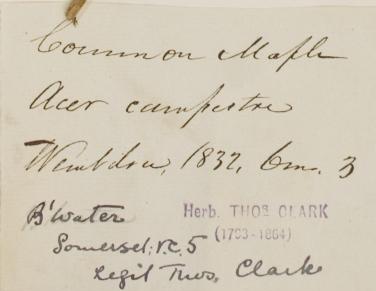 Common Maple
Acer campestre
Wembdon, 1832, 6m. 3
B'water
Herb. THOS CLARK
(1793-1864)
Somerset; V.C. 5
Legit Thos. Clark